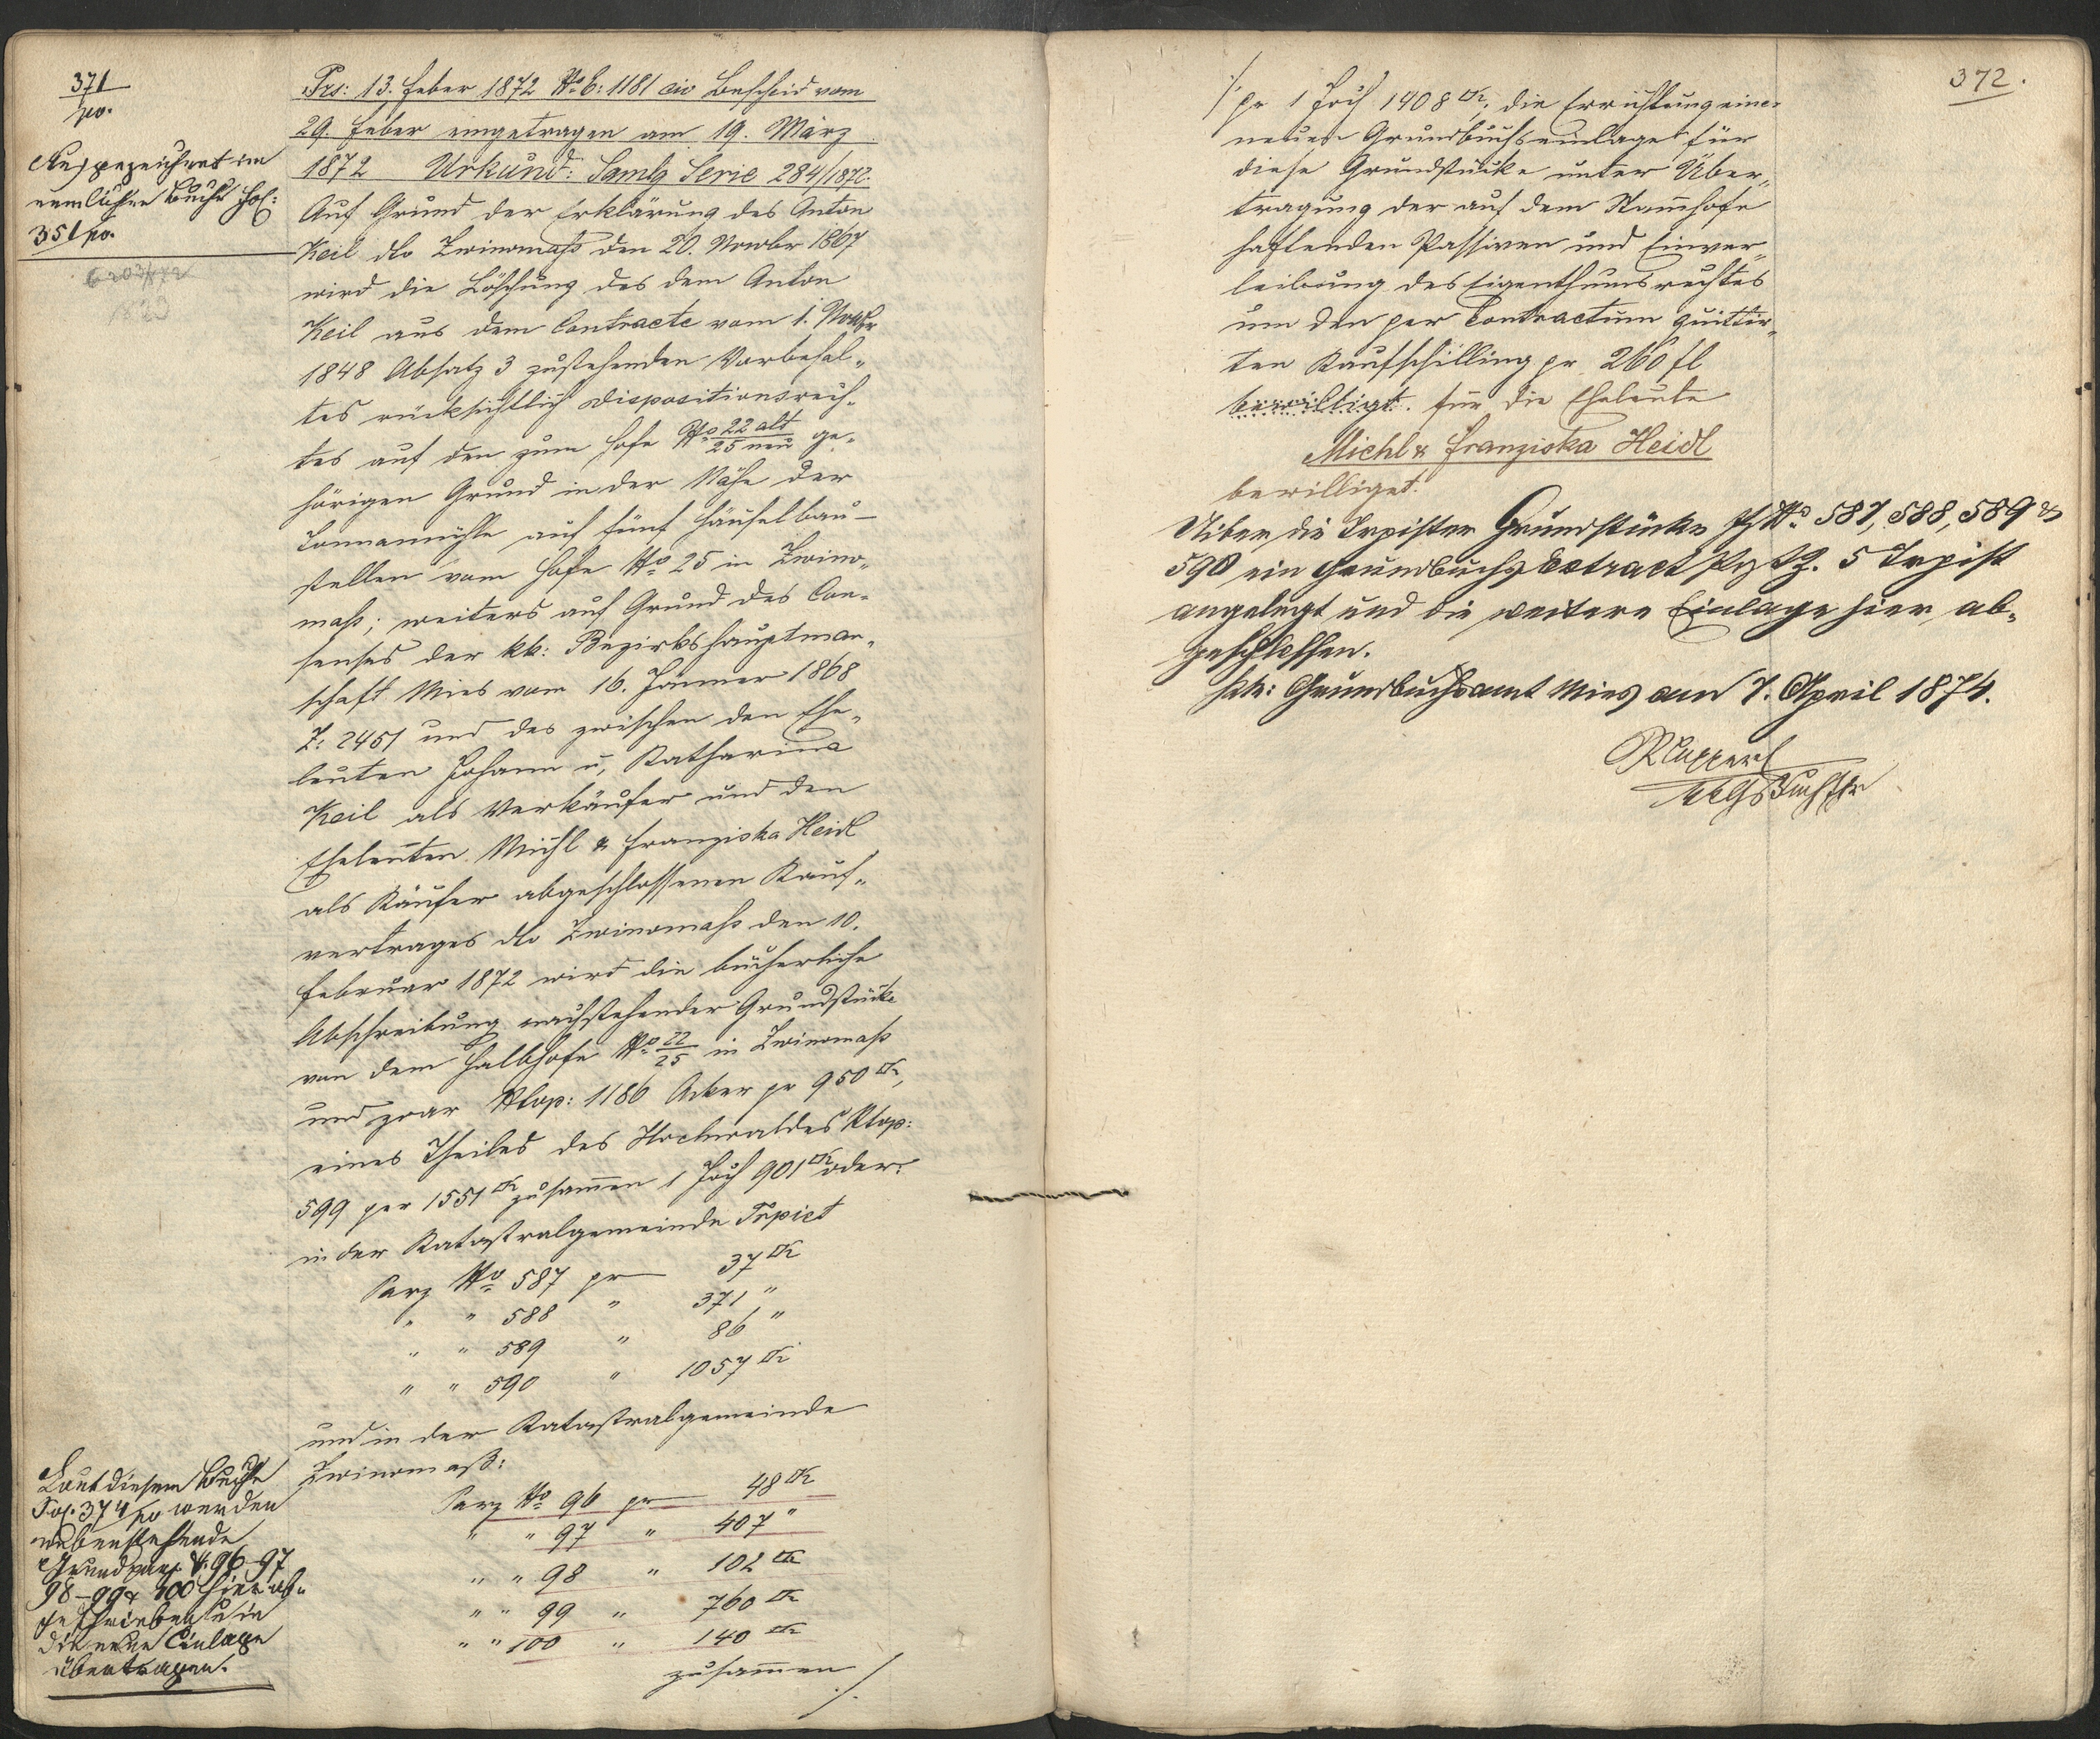 371
po.
Ausgezeichnet im
nemlichen Buche fol:
351 po.
6203/872
Prs: 13. Feber 1872 No E: 1181 civ Bescheid vom
29. Feber eingetragen am 19. März
1872 Urkund: Samlg Serie 284/1872.
Auf Grund der Erklärung des Anton
Keil dto Zwinomaß den 20. Novbr 1867
wird die Löschung des dem Anton
Keil aus dem Contracte vom 1. Novbr
1848 Absatz 3 zustehenden Vorbehal„
tes rücksichtlich Dispositionsrech„
tes auf den zum Hofe No 22 alt / 25 neu ge„
hörigen Grund in der Nähe der
auf fünf Häuselbau-
stellen vom Hofe No 25 in Zwino„
maß; weiters auf Grund des Con„
senses der kk: Bezirkshauptman„
schaft Mies vom 16. Jänner 1868
Z: 2451 und des zwischen den Ehe„
leuten Johann u, Katharina
Keil als Verkäufer und den
Eheleuten Michl & Franziska Heidl
als Käufer abgeschlossenen Kauf„
vertrages dto Zwinomaß den 10.
Februar 1872 wird die bücherliche
Abschreibung nachstehender Grundstücke
von dem Halbhofe No 22/25 in Zwinomaß
und zwar Ntop: 1186 Acker pr 950 □Kl,
eines Theiles des Hochwaldes Ntop:
599 per 1551 □Kl zusammen 1 Joch 901 □Kl oder
in der Katastralgemeinde Trpist
Parz No 587 pr 37 □Kl
" " 588 " 371 "
" " 589 " 86 "
" " 590 " 1057 □Kl
und in der Katastralgemeinde
Zwinomaß:
Parz No 96 pr 48 □Kl
" " 97 " 407 "
" " 98 " 102 □Kl
" " 99 " 760 □Kl
" " 100 " 140 □Kl
zusammen ./.
Laut diesem Buche
Fol. 374 po werden
nebenstehende
Grundparz. N: 96-97
98-99 & 100 hier ab„
geschrieben u in
die neue Einlage
übertragen.
372.
./. pr 1 Joch 1408 □Kl, die Errichtung einer
neuen Grundbuchseinlage für
diese Grundstücke unter Über„
tragung der auf dem Stammhofe
haftenden Passiven und Einver„
leibung des Eigenthumsrechtes
um den per Contractum quittir„
ten Kaufschilling pr 260 fl
bewilligt. für die Eheleute
Michl & Franziska Heidl
bewilliget.
Uiber die Trpister Grundstücke Pz No 587, 588, 589 &
590 ein Grundbuchs Extract Trpist
angelegt und die weitere Einlage hier ab„
geschlossen.
kk: Grundbuchsamt Mies am 7. April 1874.